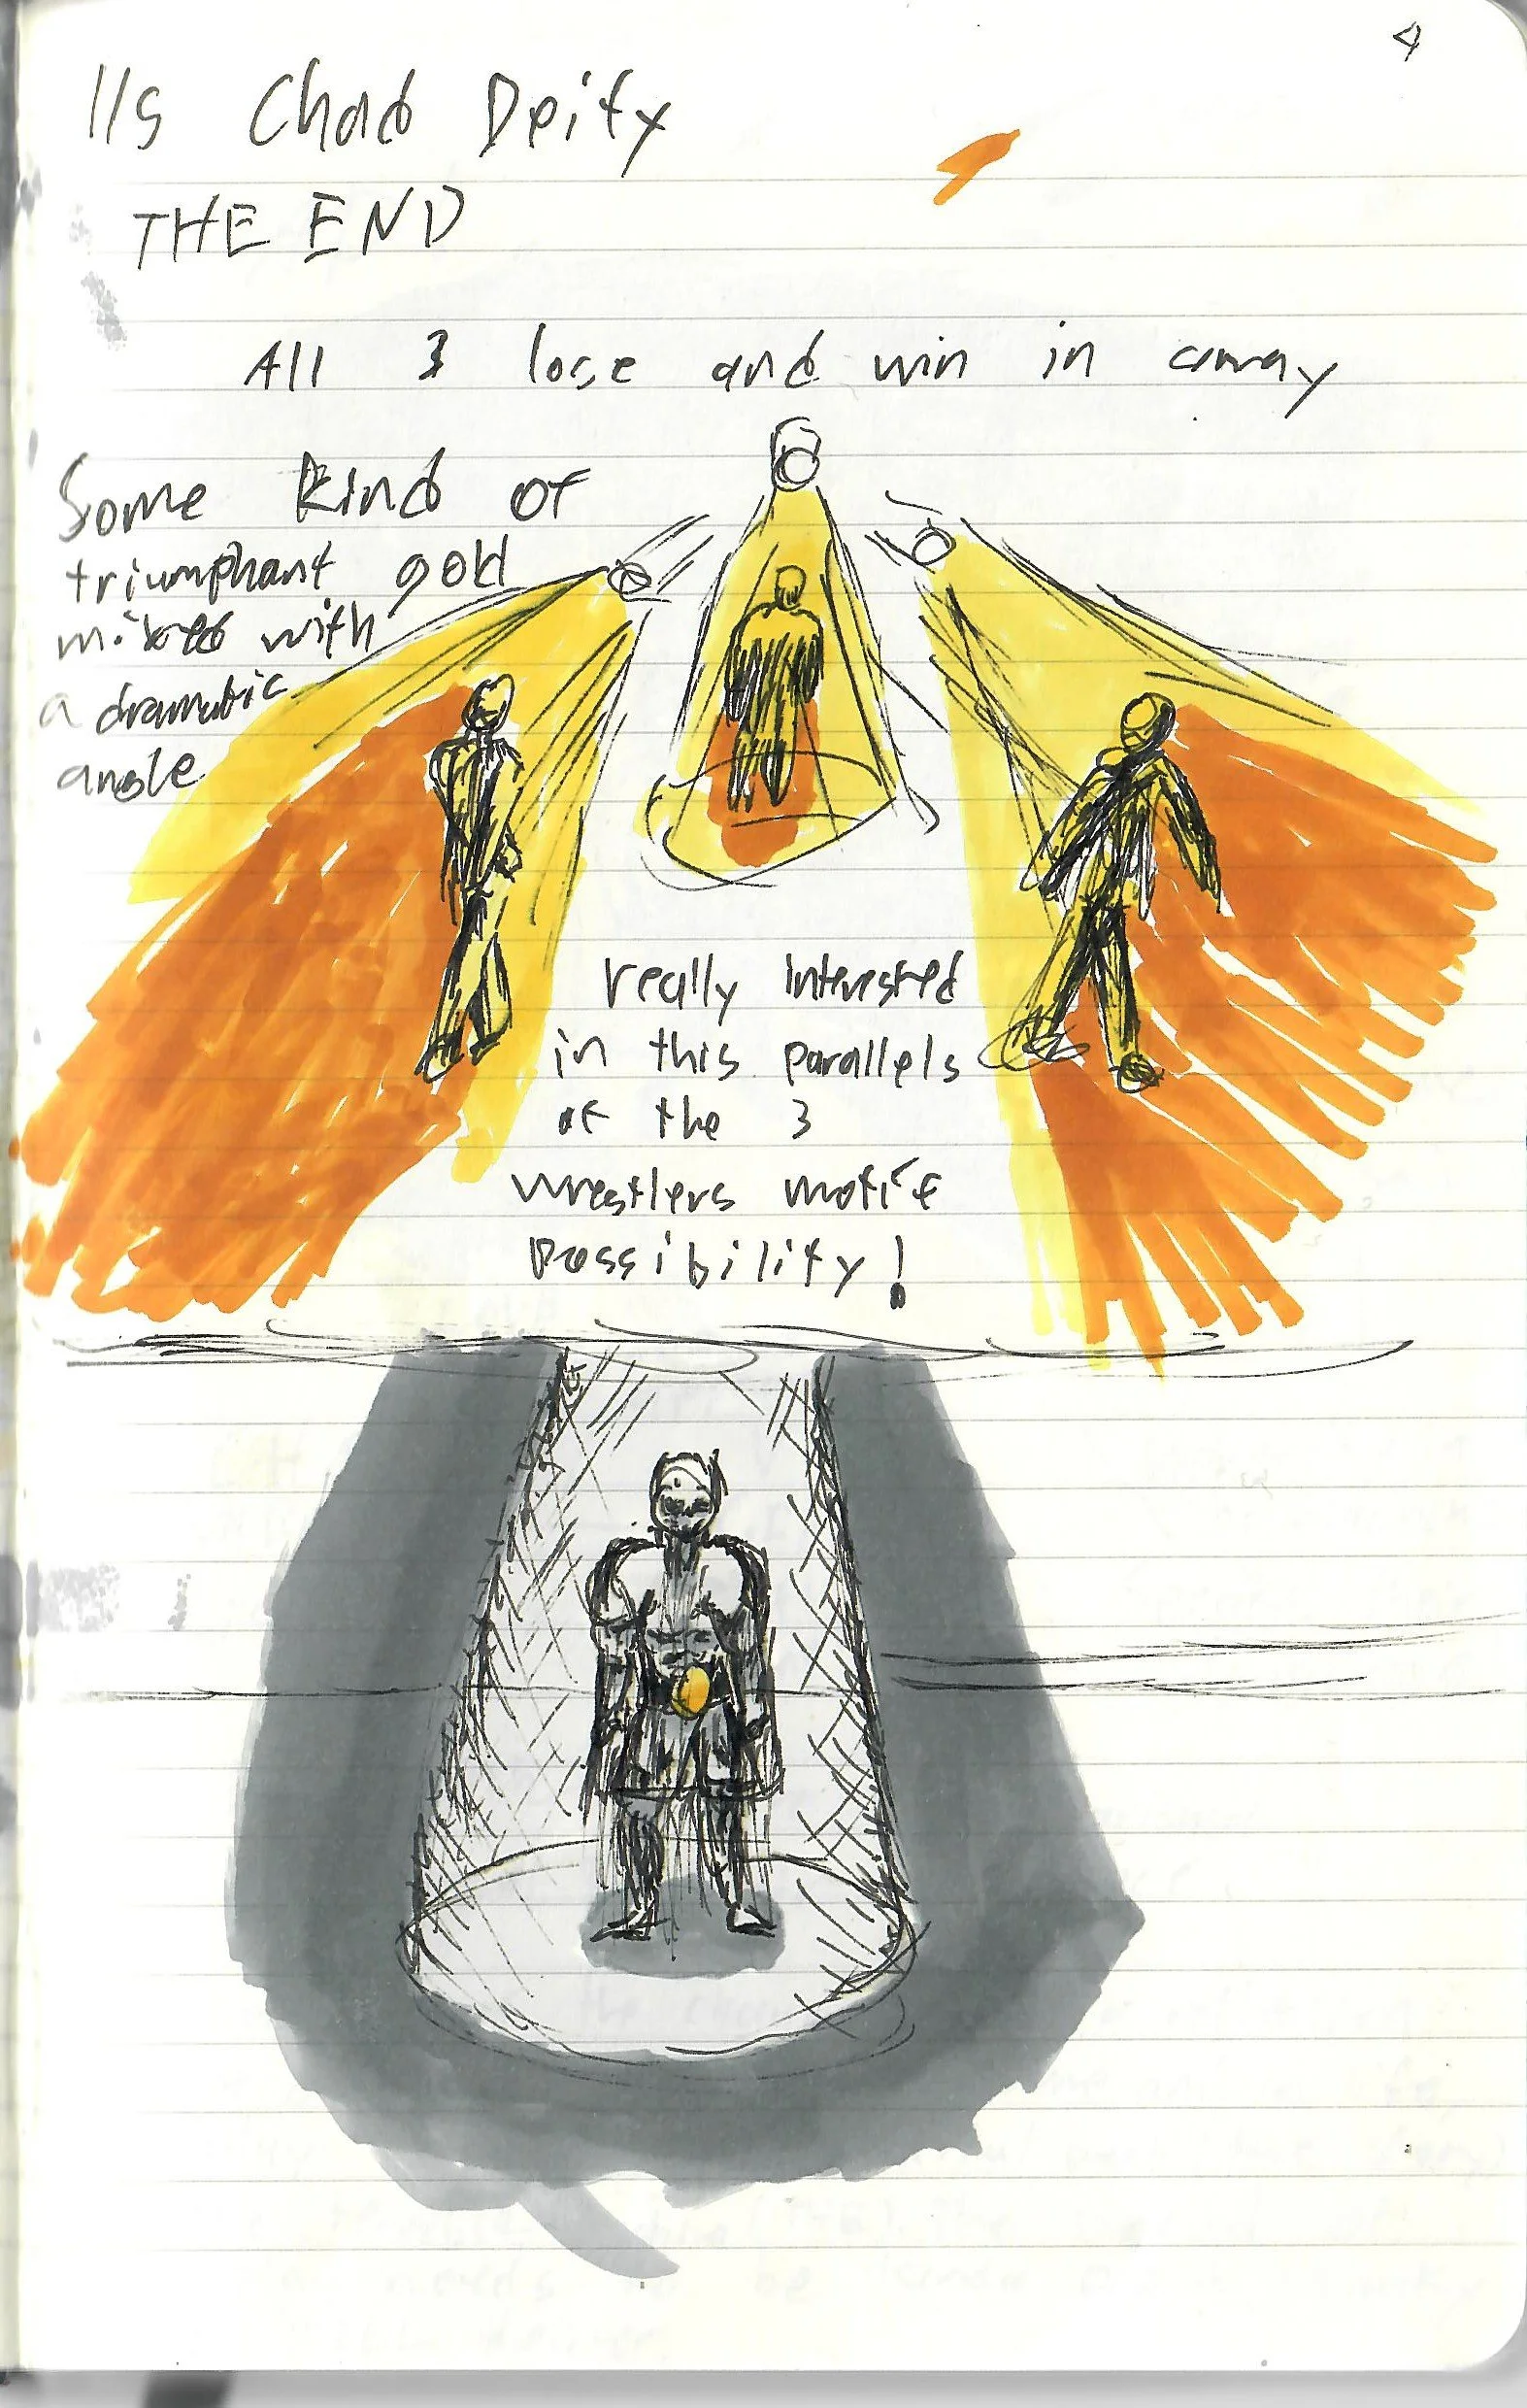 4
115 Chad Deity
THE END
All 3 lose and win in away
Some kind of
triumphant gold
mixed with
a dramatic
angle
really interested
in this parallels
of the 3
wrestlers motif
possibility!